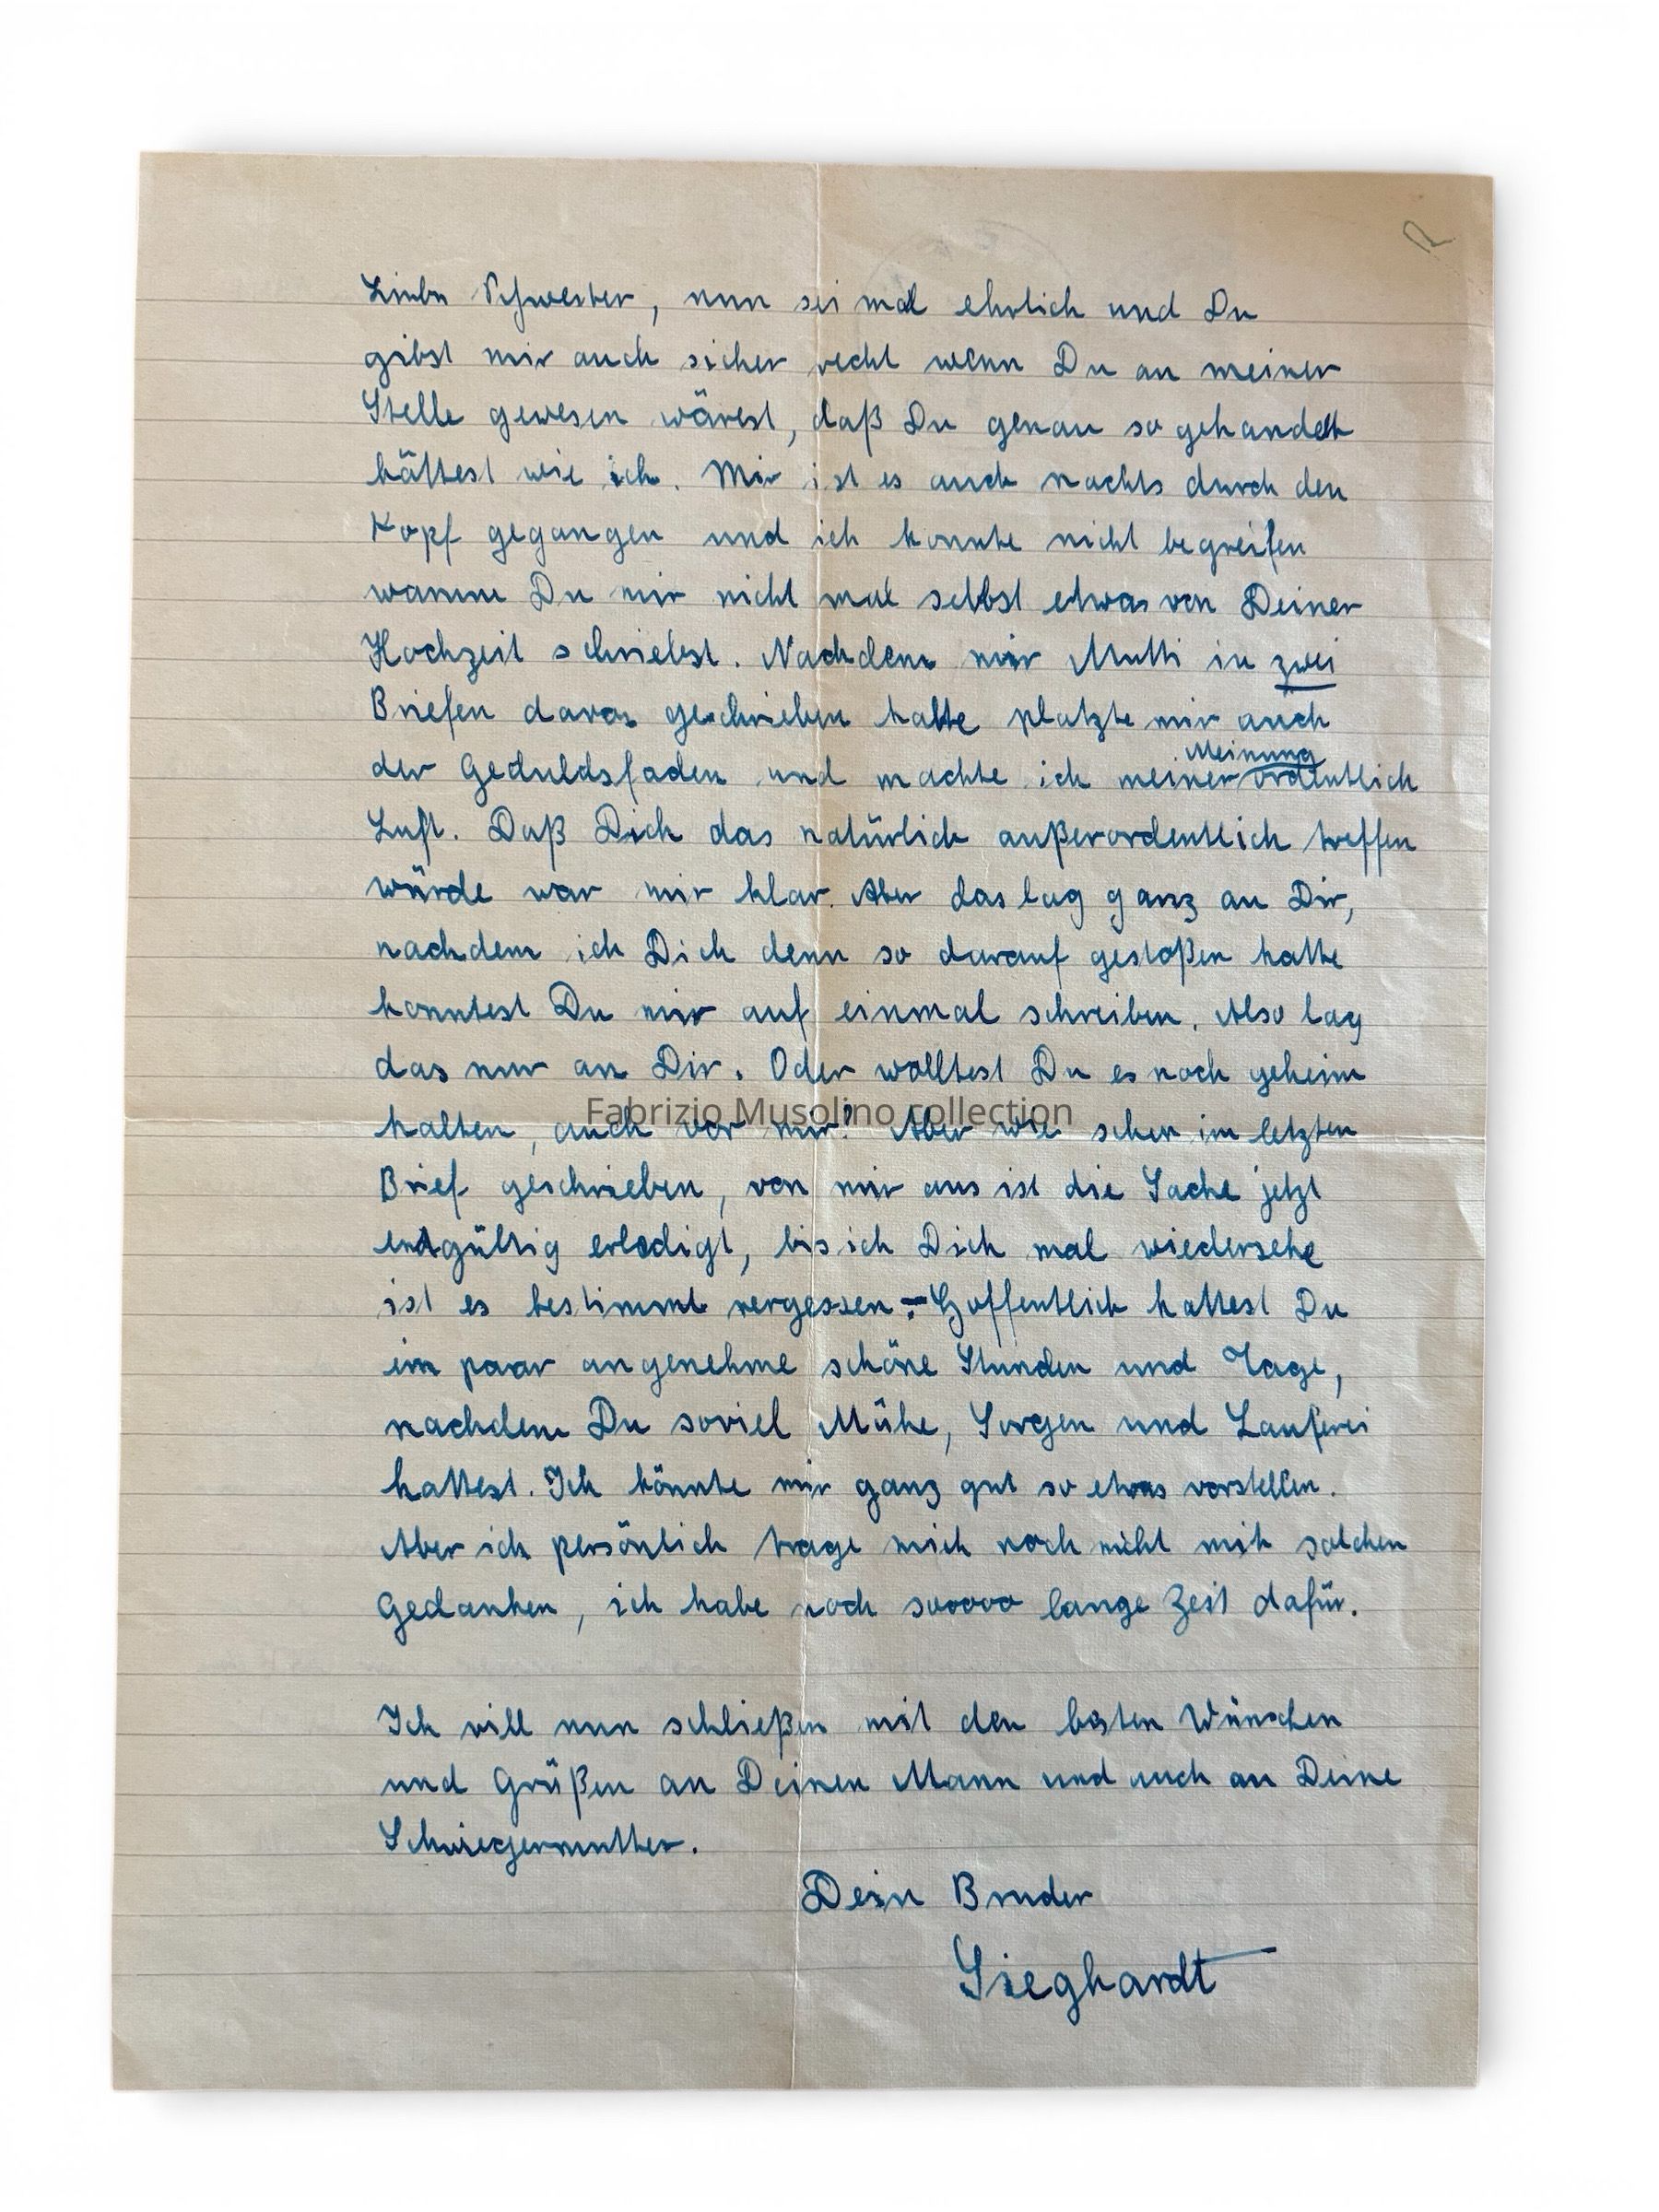 Liebe Schwester, nun sei mal ehrlich und Du
gibst mir auch sicher recht wenn Du an meiner
Stelle gewesen wärest, daß Du genau so gehandelt
hättest wie ich. Mir ist es auch nachts durch den
Kopf gegangen und ich konnte nicht begreifen
warum Du mir nicht mal selbst etwas von Deiner
Hochzeit schriebst. Nachdem mir Mutti in zwei
Briefen davon geschrieben hatte platzte mir auch
der Geduldsfaden und machte ich meiner Meinung ordentlich
Luft. Daß Dich das natürlich außerordentlich treffen
würde war mir klar. Aber das lag ganz an Dir,
nachdem ich Dich denn so darauf gestoßen hatte
konntest Du mir auf einmal schreiben. Also lag
das nur an Dir. Oder wolltest Du es noch geheim
halten, auch vor mir? Aber wie schon im letzten
Fabrizio Musolino collection
Brief geschrieben, von mir aus ist die Sache jetzt
endgültig erledigt, bis ich Dich mal wiedersehe
ist es bestimmt vergessen.- Hoffentlich hattest Du
ein paar angenehme schöne Stunden und Tage,
nachdem Du soviel Mühe, Sorgen und Lauferei
hattest. Ich könnte mir ganz gut so etwas vorstellen.
Aber ich persönlich trage mich noch nicht mit solchen
Gedanken, ich habe noch sooooo lange Zeit dafür.
Ich will nun schließen mit den besten Wünschen
und Grüßen an Deinen Mann und auch an Deine
Schwiegermutter.
Dein Bruder
Sieghardt